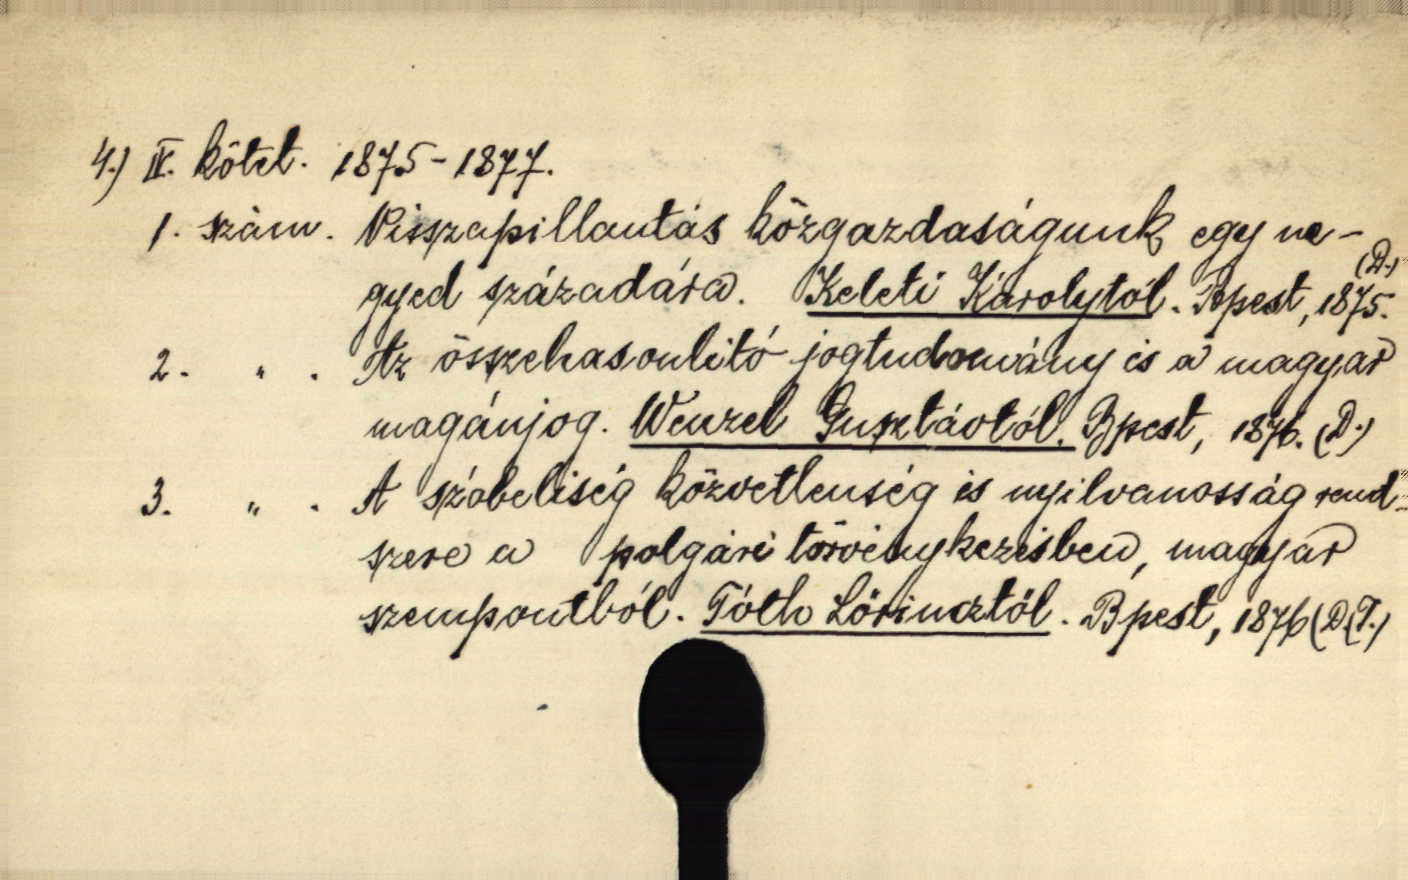 4.) IV. kötet. 1875-1877.
1. szám. Visszapillantás közgazdaságunk egy ne-
gyed századára. Keleti Károlytól. Bpest, 1875. (D.)
2. " . Az összehasonlitó jogtudomány és a magyar
magánjog. Wenzel Gusztávtól. Bpest, 1876. (D.)
3. " . A szóbeliség közvetlenség és nyilvanosság rend-
szere a polgári törvénykezésben, magyar
szempontból. Tóth Lőrincztől. Bpest, 1876 (D.(T.)